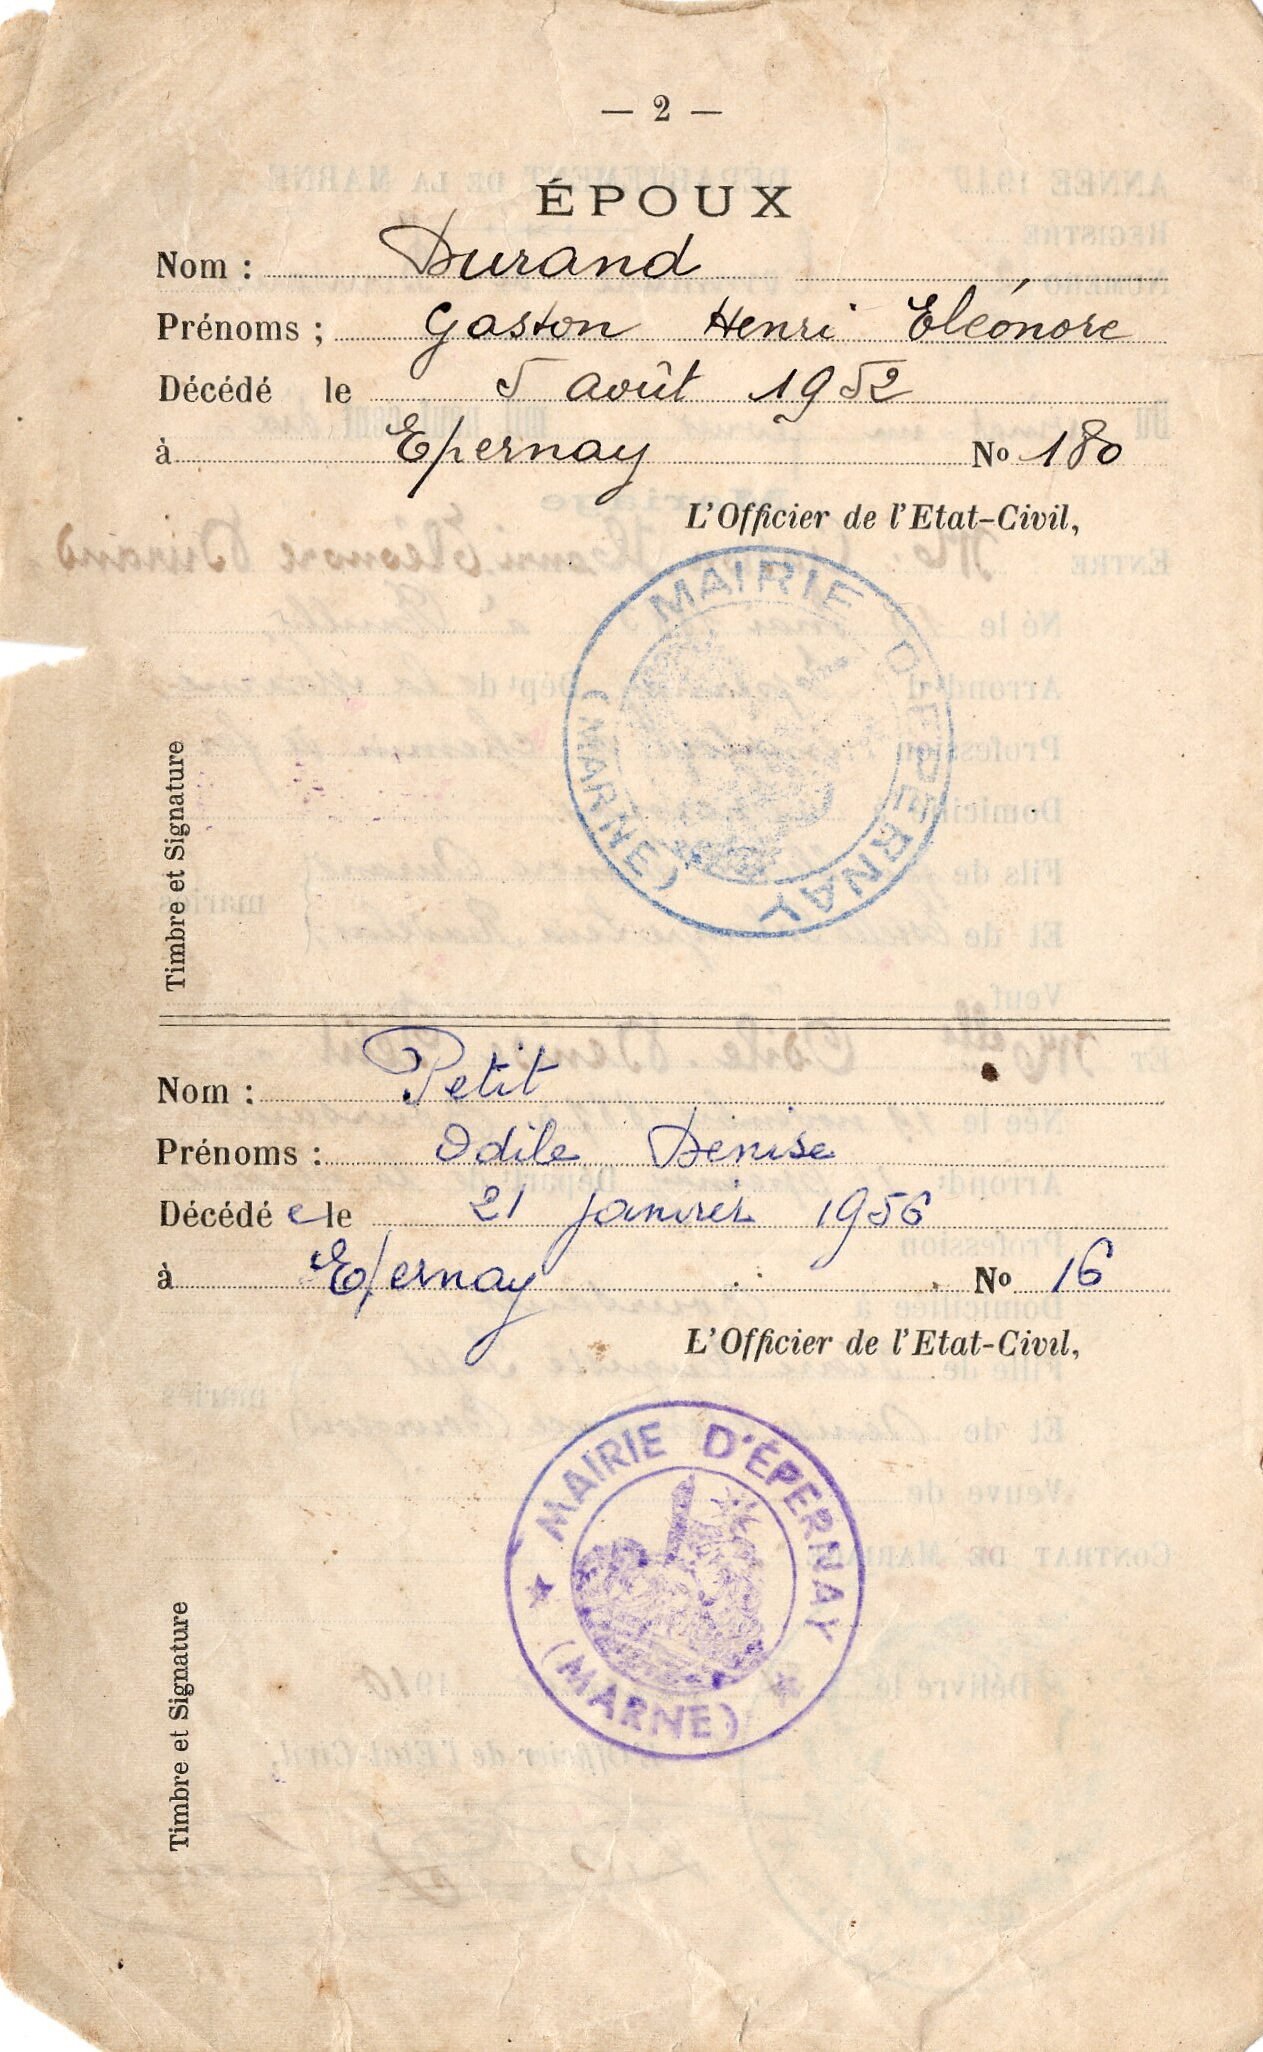 — 2 —
ÉPOUX
Nom : Durand
Prénoms ; Gaston Henri Eléonore
Décédé le 5 août 1952
à Epernay No 180
L'Officier de l'Etat-Civil,
MAIRIE D'EPERNAY
(MARNE)
Timbre et Signature
Nom : Petit
Prénoms : Odile Denise
Décédé e le 21 janvier 1956
à Epernay No 16
L'Officier de l'Etat-Civil,
MAIRIE D'ÉPERNAY
(MARNE)
Timbre et Signature